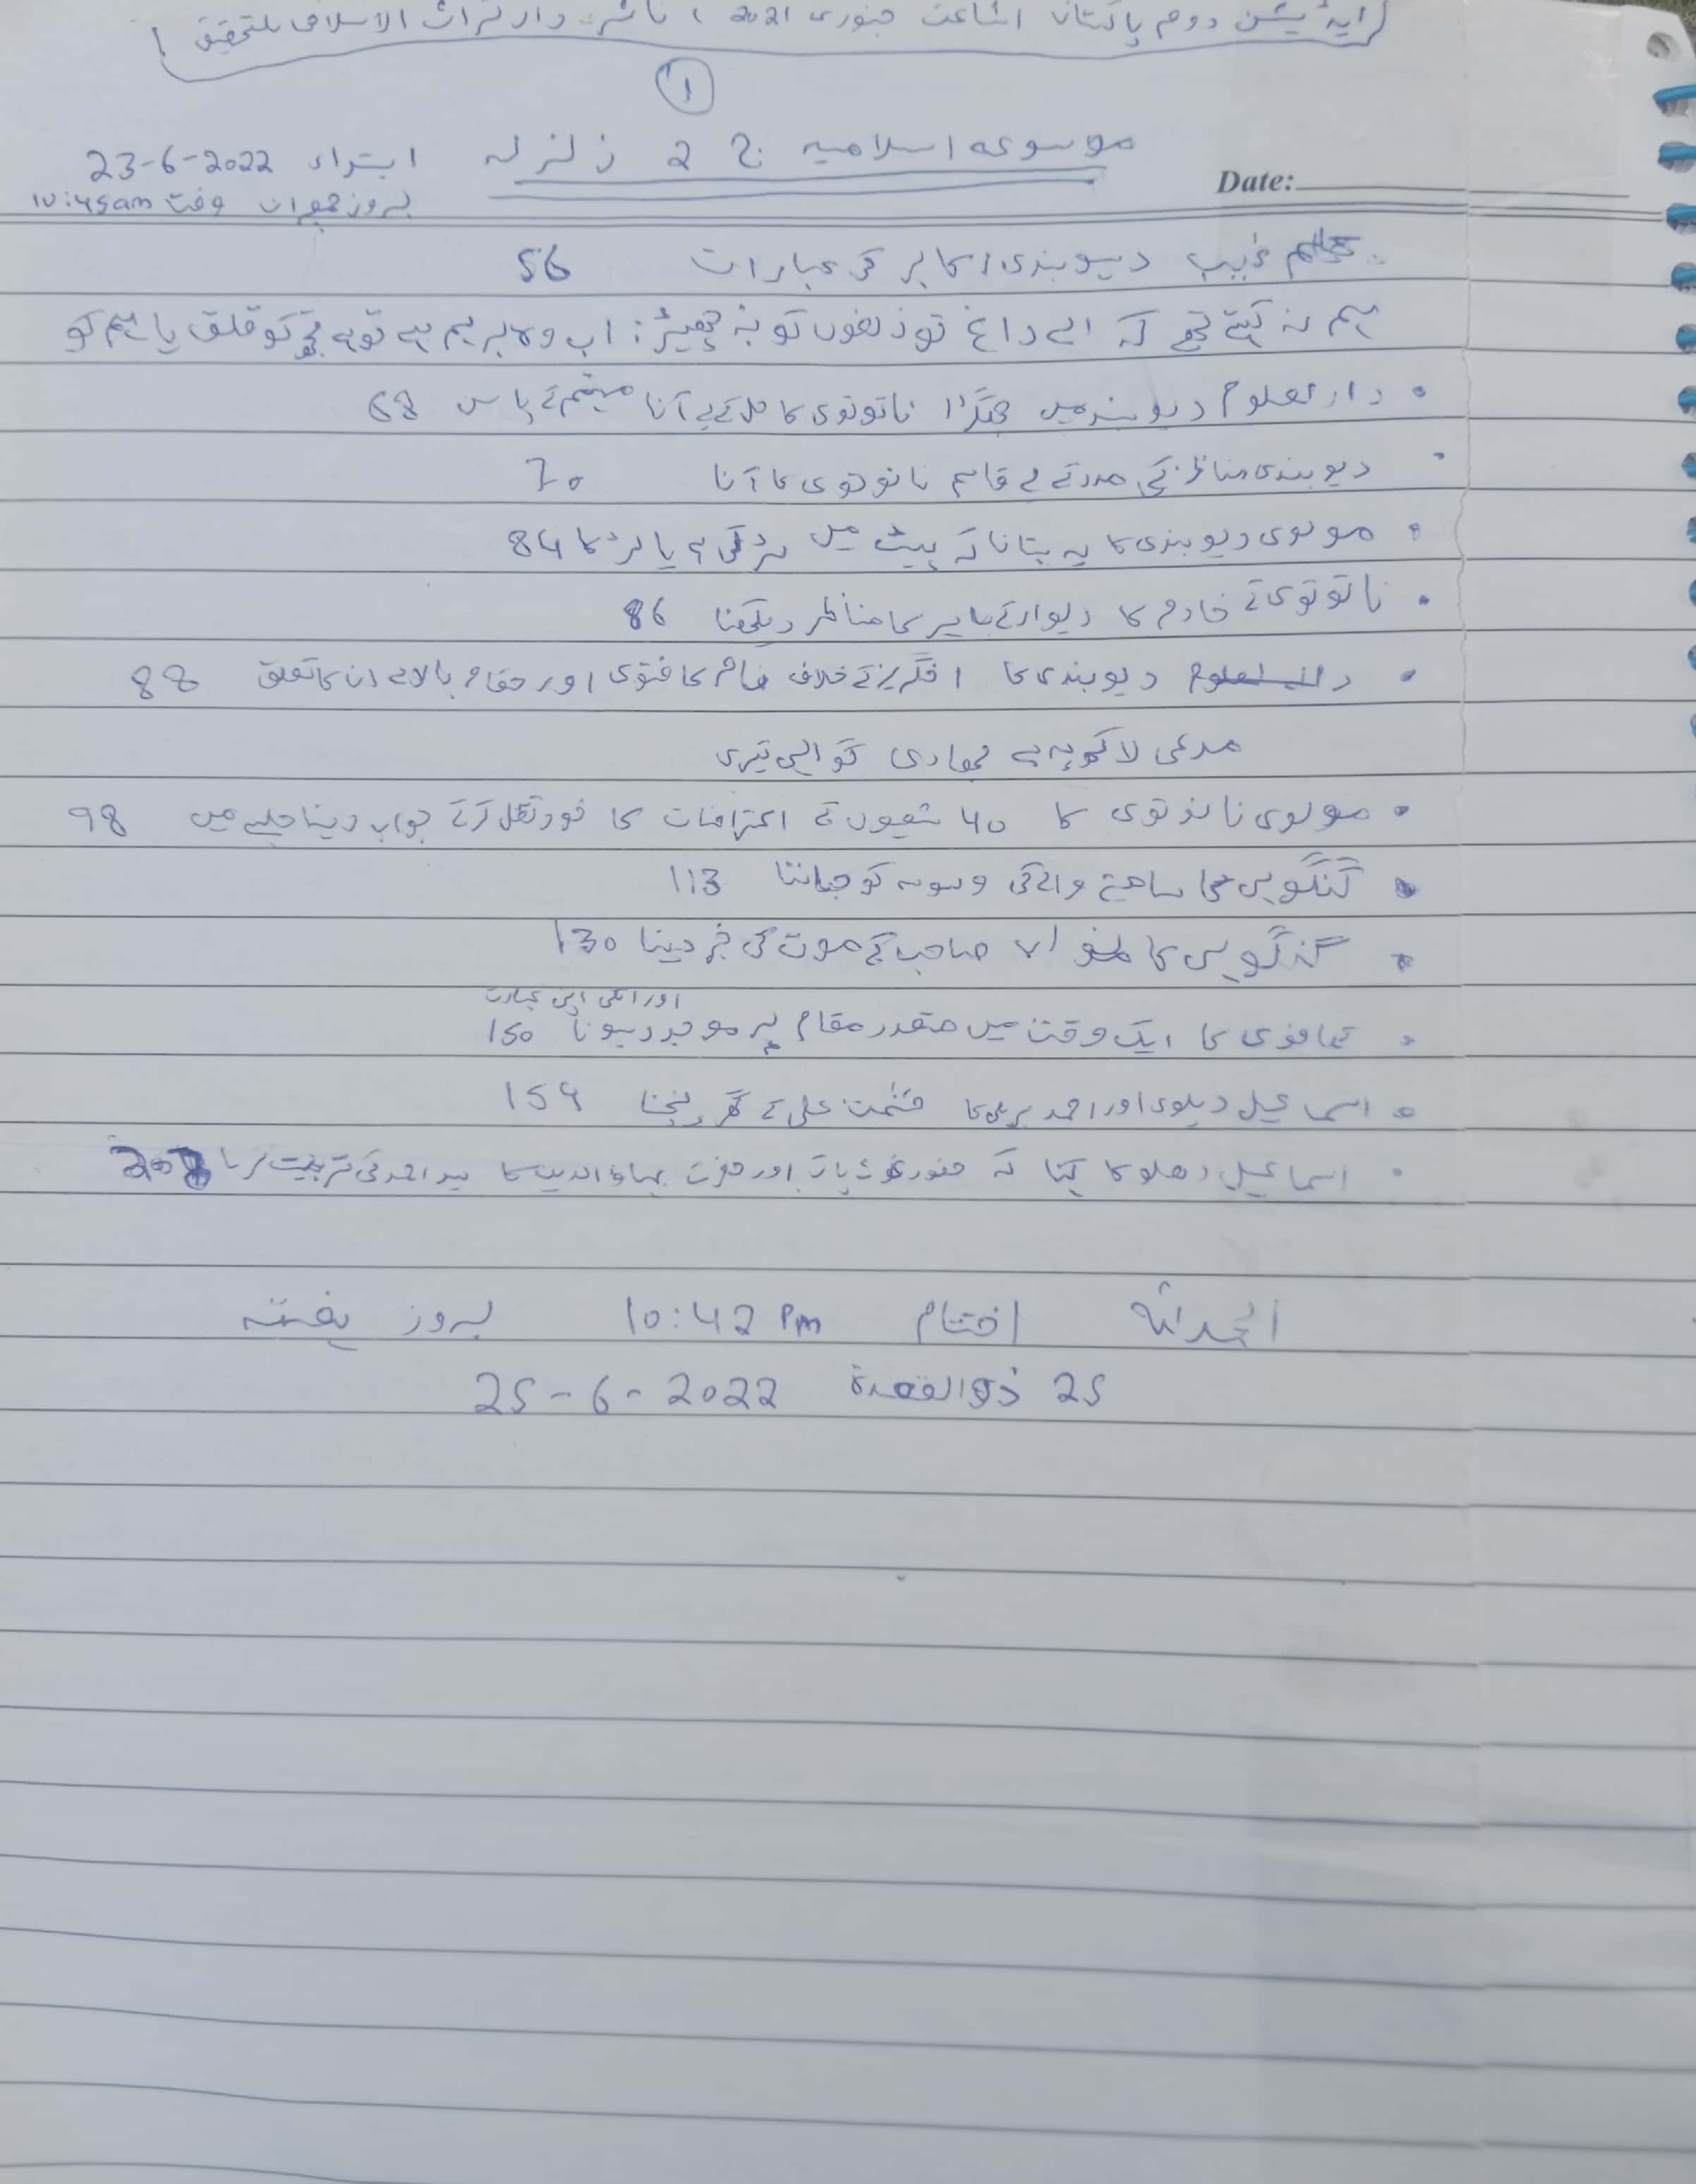 ایڈیشن دوم پاکستان اشاعت جنوری 2021، ناشر: دار تراث الاسلامی للتحقیق
1
موسوعہ اسلامیہ ج 2 زلزلہ
ابتداء 23-6-2022
بروز جمعرات وقت 10:45am
Date:
علم غیب دیوبندی اکابر کی عبارات 56
ہم نہ کہتے تھے کہ اے داغ تو زلفوں کو نہ چھیڑ: اب وہ برہم ہے تو ہے تجھ کو قلق یا ہم کو
• دارالعلوم دیوبند میں جھگڑا نانوتوی کا حل کے لیے آنا مہتمم کے پاس 68
• دیوبندی مناظر کی مدد کے لیے قاسم نانوتوی کا آنا 70
• مولوی دیوبندی کا یہ بتانا کہ پیٹ میں لڑکی ہے یا لڑکا 84
• نانوتوی کے خادم کا دیوار کے باہر کا مناظر دیکھنا 86
• دیوبندی کا انگریز کے خلاف کا فتوی اور مقام بالا سے ان کا تعلق 88
مدعی لاکھ پہ ہے بھاری گواہی تیری
• مولوی نانوتوی کا 40 شیعوں کے اعتراضات کا خود نقل کرکے جواب دینا جلسے میں 98
• گنگوہی کا سامنے والے کی وسوسہ کو جاننا 113
• گنگوہی کا صاحب کے موت کی خبر دینا 130
اور انکی اپنی عبارت
• تھانوی کا ایک وقت میں متعدد مقام پر موجود ہونا 150
• اسماعیل دہلوی اور احمد بریلی کا حشمت علی کے گھر پہنچنا 154
• اسماعیل دھلو کا کہنا کہ حضور غوث پاک اور حضرت بہاؤالدین کا سید احمد کی تربیت کرنا 208
الحمدللہ اختتام 10:42 Pm بروز ہفتہ
25 ذوالقعدۃ 25-6-2022